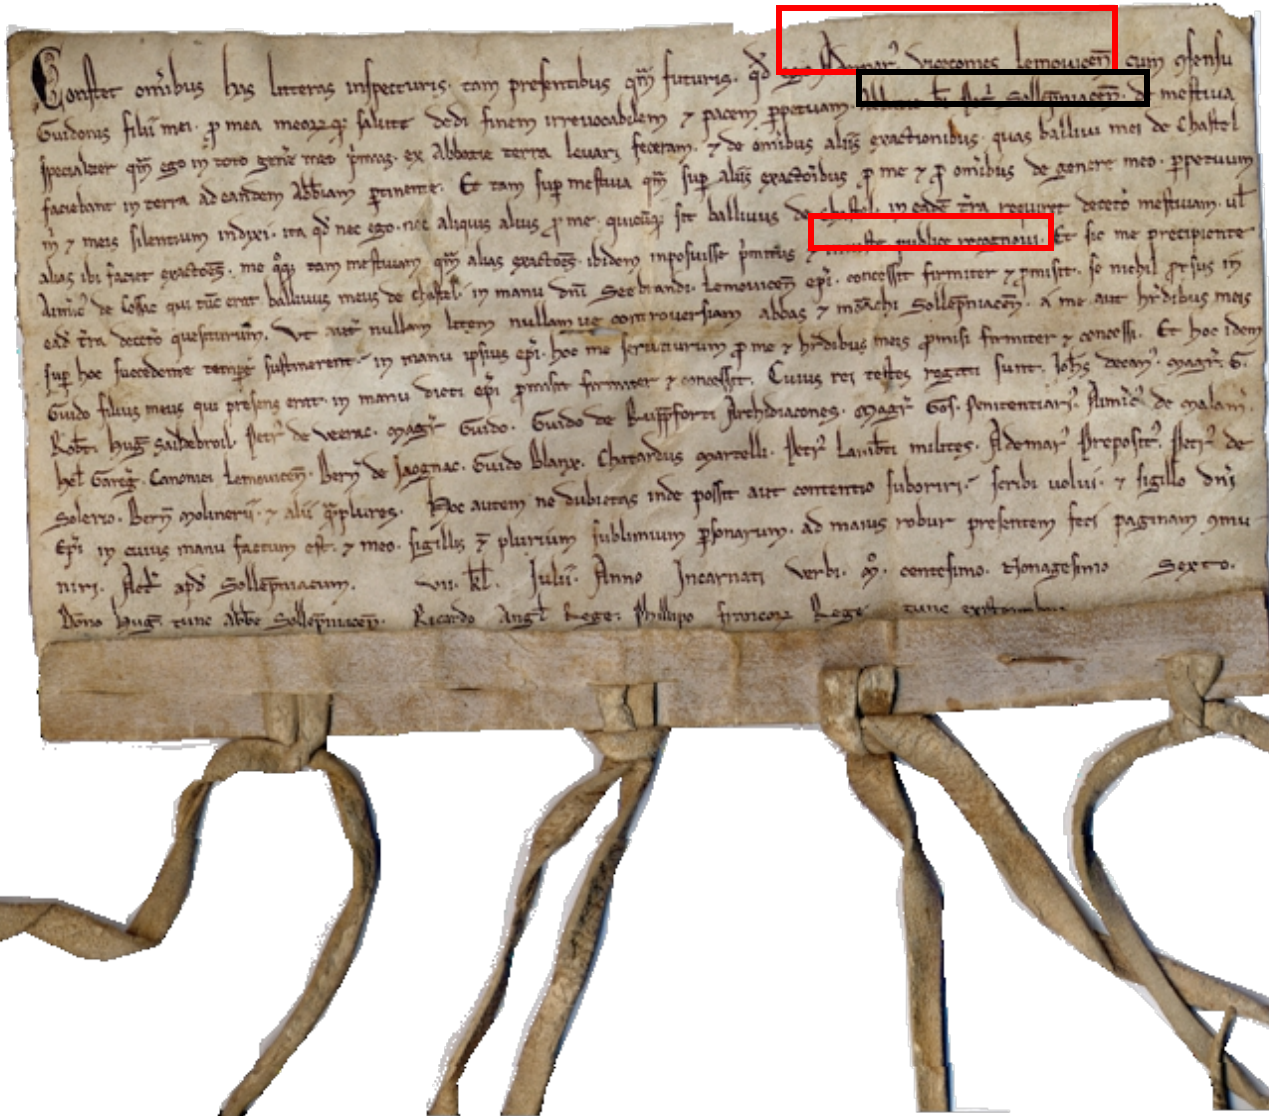 Constet om̄ibus has litteras inspecturis. tam presentibus qm̄ futuris. qd̄ ego Ademar' vicecomes Lemovicen̄. cum ɔsensu
Guidonis filii mei. ꝑ mea meorꝝ qꝫ salute dedi finem irrevocabilem ⁊ pacem ꝑpetuam. Abbatie b̄i Petr' Sollēpniacen̄. de mestiva
specialiter qm̄ ego in toto gen̄e meo p̄mus. ex Abbatie terra levari feceram. ⁊ de om̄ibus aliis exactionibus. quas ballivi mei de chastel
faciebant in terra ad eandem abb̄iam ꝑtinente. Et tam suꝑ mestiva qm̄ suꝑ aliis exactōibus ꝓ me ⁊ ꝓ om̄ibus de genere meo. ꝑpetuum
m̄ ⁊ meis silentium indixi. ita qd̄ nec ego. nec aliquis alius ꝓ me. quicūqꝫ sit ballivus de chastel. in eadē t̄ra requiret decetō mestivam. ul̄
alias ibi faciet exactōes. me qꝫ tam mestivam qm̄ alias exactōes. ibidem inposuisse p̄mitus publice recognovi. Et sic me precipiente
Aimic' de lossac qui tūc erat ballivus meus de chastel. in manu dn̄i Seebrandi. Lemovicen̄ ep̄i. concessit firmiter ⁊ ꝓmisit. se nichil ꝓrsus in
ead' t̄ra decetō quesiturum. Ut aut' nullam litem nullam ve controversiam abbas ⁊ mōachi Sollēpniacen̄. a me aut hr̄dibus meis
suꝑ hoc succedente tempore sustinerent. in manu ipsius ep̄i. hoc me servaturum ꝓ me ⁊ hr̄dibus meis ꝓmisi firmiter ⁊ concessi. Et hoc idem
Guido filius meus qui presens erat. in manu dicti ep̄i ꝓmisit firmiter ⁊ concessit. Cuius rei testes rogati sunt. Joh̄s decan'. magr̄. G.
Rob̄t. Hug' Petr' de veerac. magr̄ Guido. Guido de Rupforti Archidiacones. magr̄ Gos. Penitentiari'. Aimic' de malam̄.
hel' Gareḡ. Canonici Lemovicen̄. Bern̄ de Jaognac. Guido blanx. Chatardus martelli. Petr' Lamb̄ti milites. Ademar' Preposit'. Petr' de
Solerio. Bern̄ Molinerii. ⁊ alii q̄mplures. Hoc autem ne dubietas inde possit aut contentio suboriri. scribi volui. ⁊ sigillo dn̄i
Ep̄i in cuius manu factum est. ⁊ meo. sigillis ⁊ plurium sublimium ꝑsonarum. ad maius robur presentem feci paginam ɔmu
niri. Act' apd̄ Sollēpniacum. vii. kl̄. Julii. Anno Incarnati verbi. mº. centesimo. nonagesimo sexto.
Dn̄o hug' tunc abb̄e Sollēpniacen̄. Ricardo Angl' Rege. Phillipo francoꝝ Rege tunc